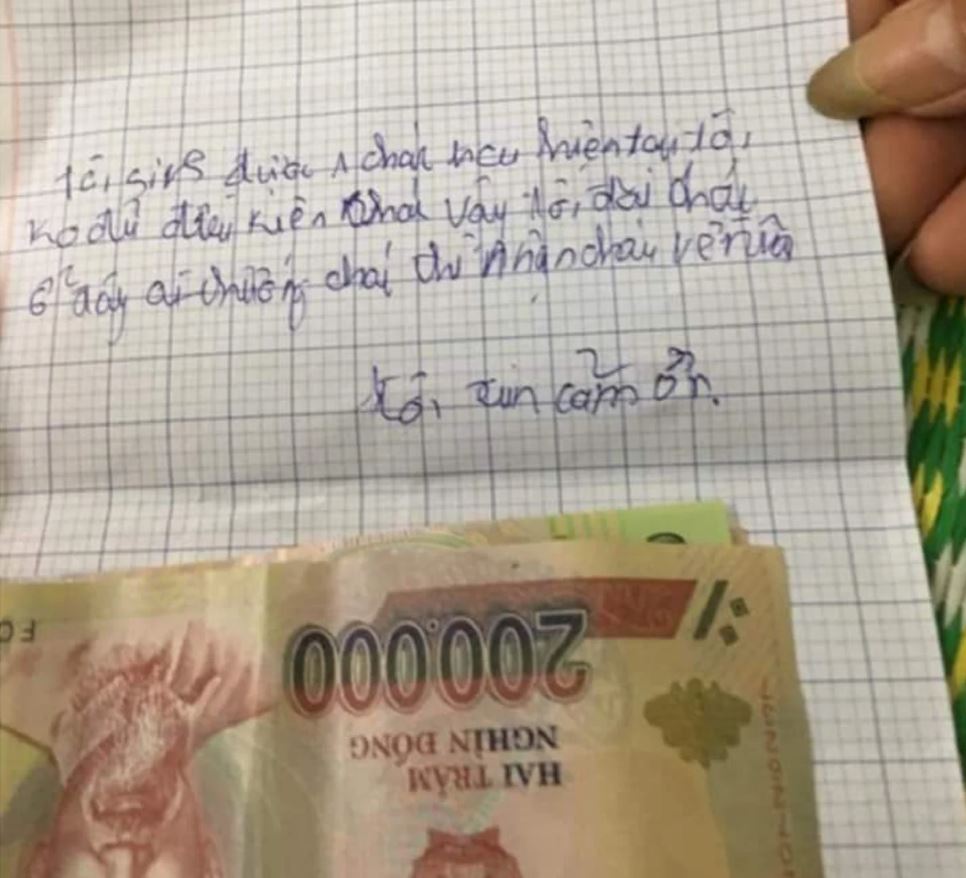 tôi sinh được 1 cháu nếu hiện tay tôi
ko đủ điều kiện vậy tôi dại cháu
ở đây ai thương cháu thì nhận cháu về nuôi
tôi xin cảm ơn.
200.000
NGHÌN ĐỒNG
HAI TRĂM